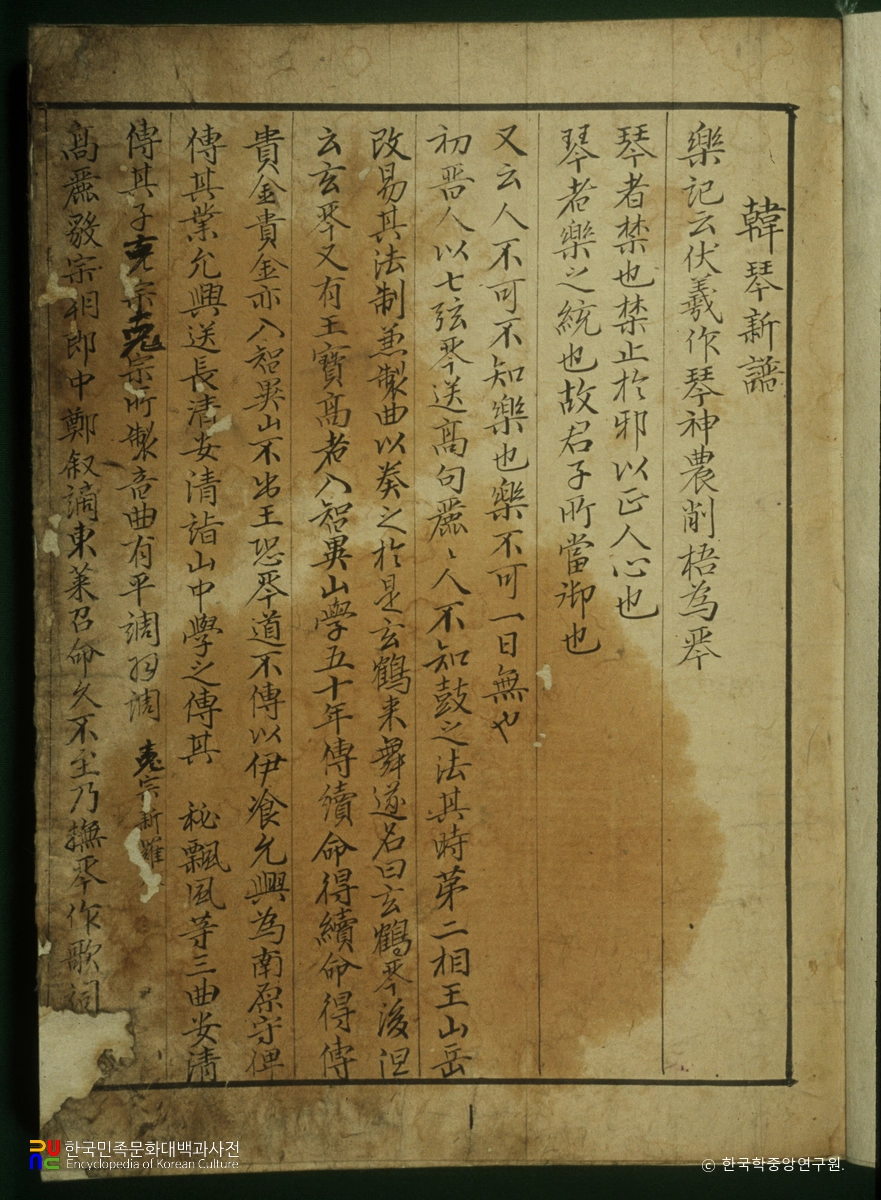 韓琴新譜
樂記云伏羲作琴神農削梧為琴
琴者禁也禁止於邪以正人心也
琴者樂之統也故君子所當御也
又云人不可不知樂也樂不可一日無也
初晋人以七弦琴送高句麗〻人不知鼓之法其時第二相王山岳
改易其法制兼製曲以奏之於是玄鶴来舞遂名曰玄鶴琴後但
云玄琴又有王寶高者入智異山學五十年傳續命得續命得傳
貴金貴金亦入智異山不出王恐琴道不傳以伊飡允興為南原守俾
傳其業允興送長清安清詣山中學之傳其 秘飄風等三曲安清
傳其子克宗克宗所製音曲有平調羽調 克宗新羅
高麗毅宗朝郎中鄭叙謫東萊召命久不至乃撫琴作歌詞
한국민족문화대백과사전
Encyclopedia of Korean Culture
© 한국학중앙연구원.